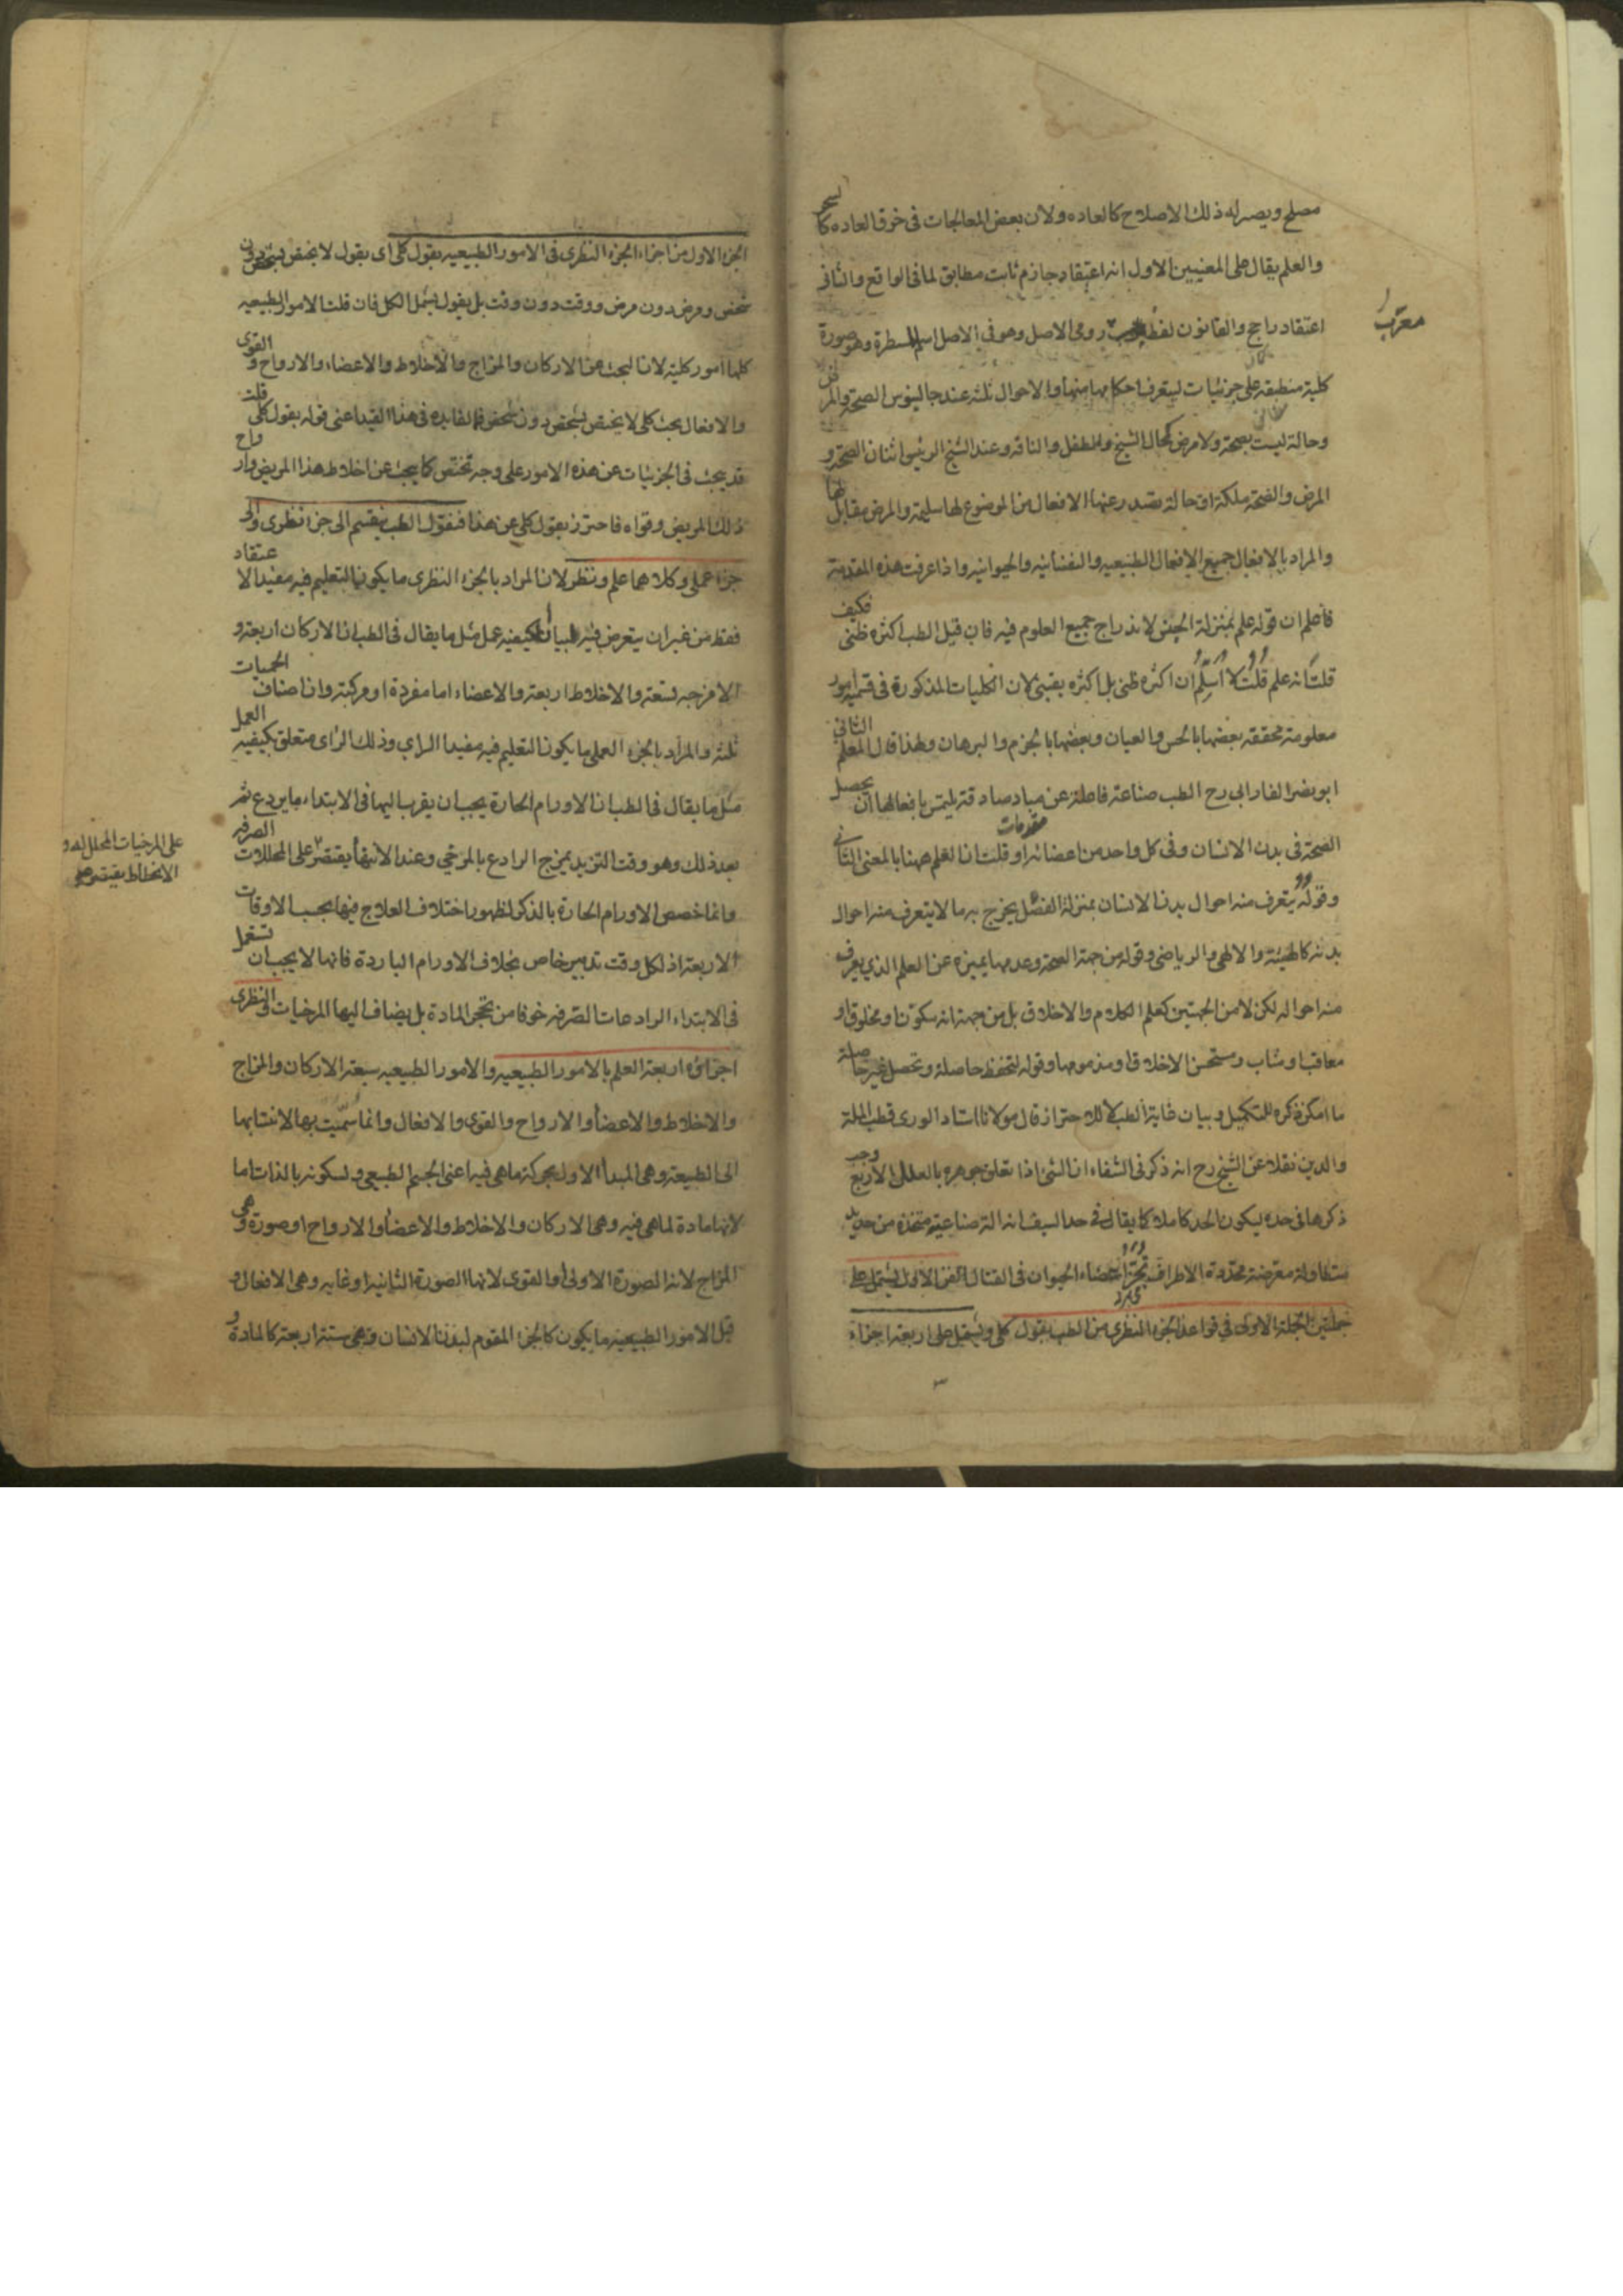 مصلح ويصير له ذلك الاصلاح كالعاده ولان بعض المعالجات فى خرق العاده كالسحر
والعلم يقال على المعنيين الاول انه اعتقاد جازم ثابت مطابق لما فى الواقع والثانى
اعتقاد راجح والقانون لفظ رومى الاصل وهو فى الاصل اسم المسطرة وهو صورة
معرب
كلية منطبقه على جزئيات ليتعرف احكامها منها والاحوال ثلثه عند جالينوس الصحة والمرض
وحالة ليست بصحة ولا مرض كحال الشيخ والطفل والناقه وعند الشيخ الرئيس اثنان الصحة و
المرض والصحة ملكة او حالة تصدر عنها الافعال من الموضوع لها سليمة والمرض مقابل لها
والمراد بالافعال جميع الافعال الطبيعيه والنفسانيه والحيوانيه واذا عرفت هذه المقدمة
فاعلم ان قوله علم بمنزلة الجنس لاندراج جميع العلوم فيه فان قيل الطب اكثره ظنى فكيف
قلت انه علم قلت لا اسلم ان اكثره ظنى بل اكثره يقينى لان الكليات المذكورة فى قسميه امور
معلومة محققه بعضها بالحس والعيان وبعضها بالجزم والبرهان ولهذا قال المعلم الثانى
ابو نصر الفارابى رح الطب صناعة فاعلة عن مباد صادقة يلتمس بافعالها ان يحصل
الصحة فى بدن الانسان وفى كل واحد من اعضائه او قلت ان العلم ههنا بالمعنى الثانى
مقدمات
وقوله يتعرف منه احوال بدن الانسان بمنزلة الفصل يخرج به ما لا يتعرف منه احوال
بدنه كالهيئة والالهى والرياضى وقوله من جهة الصحة وعدمها يميزه عن العلم الذى يعرف
منه احواله لكن لا من الجهتين كعلم الكلام والاخلاق بل من جهة انه مخلوق او
معاقب او مثاب ومستحسن الاخلاق او مذمومها وقوله لتحفظ حاصلة وتحصل غير حاصلة
ما امكن ذكره للتكميل وبيان غاية الطب لا للاحتراز قال مولانا استاد الورى قطب الملة
والدين نقلا عن الشيخ رح انه ذكر فى الشفاء ان الشئ اذا تعلق جوهره بالعلل الاربع وجب
ذكرها فى حده ليكون الحد كاملا كما يقال فى حد السيف انه الة صناعية متخذة من حديد
متطاولة معرضة محددة الاطراف تجزأ اعضاء الحيوان فى القتال الفن الاول يشتمل على
جملتين الجملة الاولى فى قواعد الجزء النظرى من الطب بقول كلى ويشتمل على اربعة اجزاء
الجزء الاول من اجزاء الجزء النظرى فى الامور الطبيعيه بقول كلى اى بقول لا يختص بشخص دون
شخص ومرض دون مرض ووقت دون وقت بل بقول يشمل الكل فان قلت الامور الطبيعيه
كلها امور كلية لانا لبحث عن الاركان والمزاج والاخلاط والاعضاء والارواح والقوى
والافعال بحث كلى لا يختص بشخص دون شخص فما الفايده فى هذا القيد اعنى قوله بقول كلى قلت
قد يبحث فى الجزئيات عن هذه الامور على وجه تختص كما يبحث عن اخلاط هذا المريض وارواح
ذلك المريض وقواه فاحترز بقول كلى عن هذا فنقول الطب ينقسم الى جزء نظرى والى
جزء عملى وكلاهما علم ونظر لان المراد بالجزء النظرى ما يكون التعليم فيه مفيد الاعتقاد
فقط من غير ان يتعرض فيه لبيان كيفيه عمل مثل ما يقال فى الطب ان الاركان اربعة و
الامزجه تسعة والاخلاط اربعة والاعضاء اما مفردة او مركبة وان اصناف الحميات
ثلثه والمراد بالجزء العملى ما يكون التعليم فيه مفيدا الراى وذلك الراى متعلق بكيفيه العمل
مثل ما يقال فى الطب ان الاورام الحارة يجب ان يقرب اليها فى الابتداء ما يردع ثم
بعد ذلك وهو وقت التزيد يمزج الرادع بالمرخى وعند الانتهأ يقتصر على المحللات الصرفه
على المرخيات المحلله و
الانحطاط يقتصر على
وانما خصص الاورام الحارة بالذكر لظهور اختلاف العلاج فيها بحسب الاوقات
الاربعة اذ لكل وقت تدبير خاص بخلاف الاورام الباردة فانها لا يجب ان تستعمل
فى الابتداء الرادعات الصرفه خوفا من تحجر المادة بل يضاف اليها المرخيات والنظرى
اجزاؤه اربعة العلم بالامور الطبيعيه والامور الطبيعيه سبعة الاركان والمزاج
والاخلاط والاعضأ والارواح والقوى والافعال وانما سميت بها لانتسابها
الى الطبيعة وهى المبدأ الاول لحركة ماهى فيه اعنى الجسم الطبيعى ولسكونه بالذات اما
لانها مادة لما هى فيه وهى الاركان والاخلاط والاعضأ والارواح او صورة وهى
المزاج لانه الصورة الاولى والقوى لانها الصورة الثانية او غايه وهى الافعال و
قيل الامور الطبيعيه ما يكون كالجزء المقوم لبدن الانسان وهى ستة اربعة كالمادة و